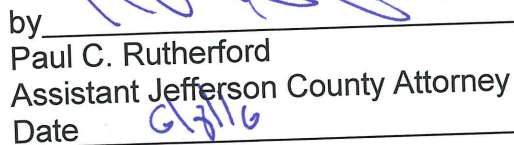 by
Paul C. Rutherford
Assistant Jefferson County Attorney
Date 6/8/16